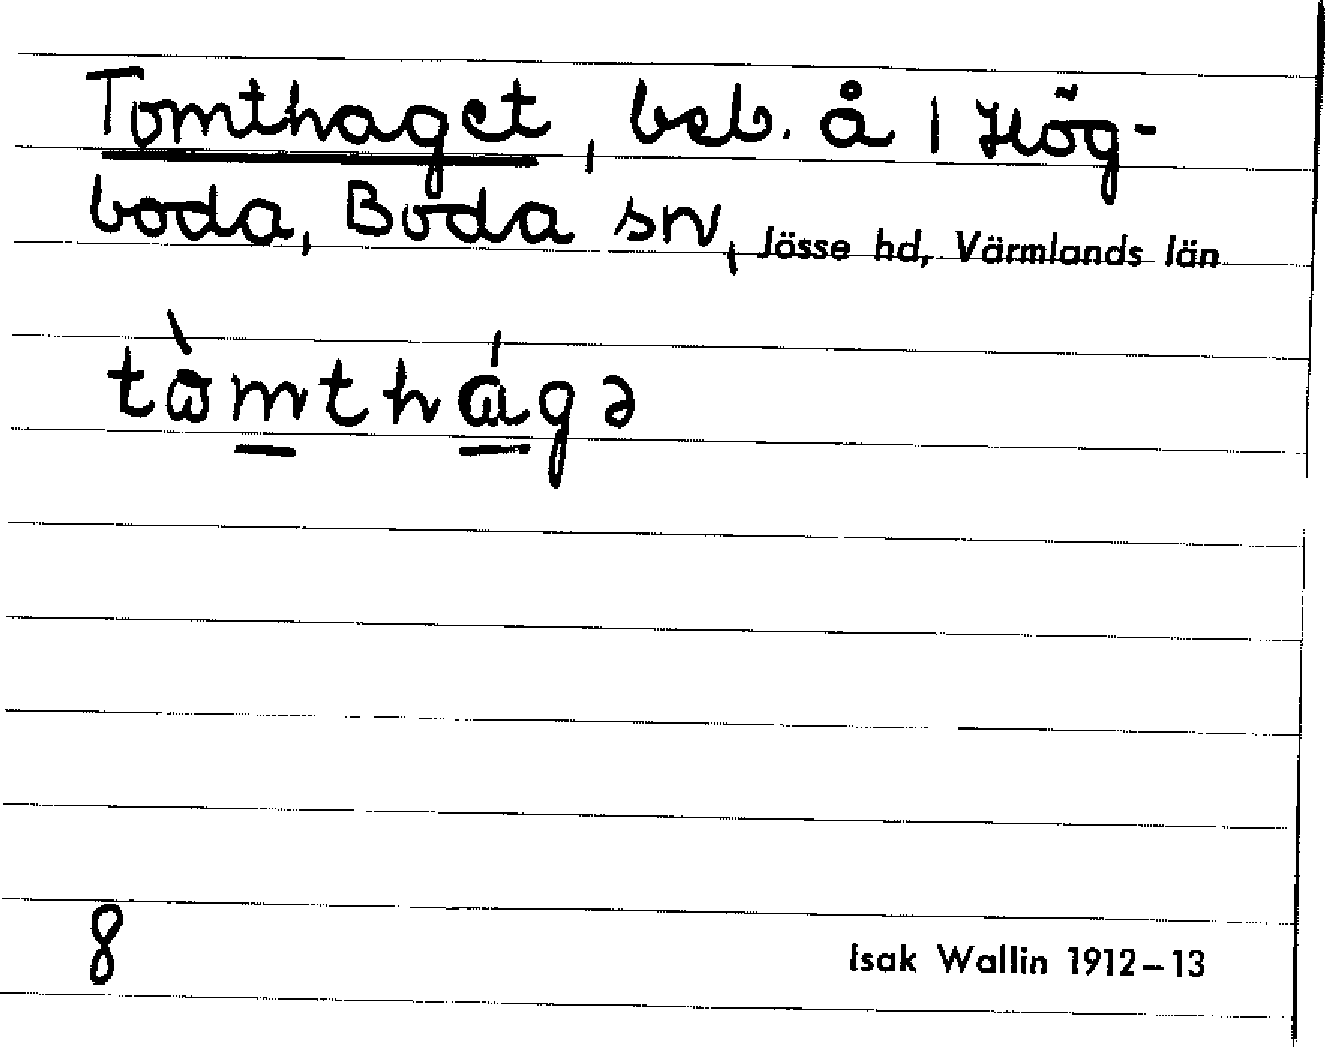 Tomthaget, beb. å 1 Hög-
boda, Boda sn, Jösse hd, Värmlands län
tὼmthágə
8
Isak Wallin 1912–13